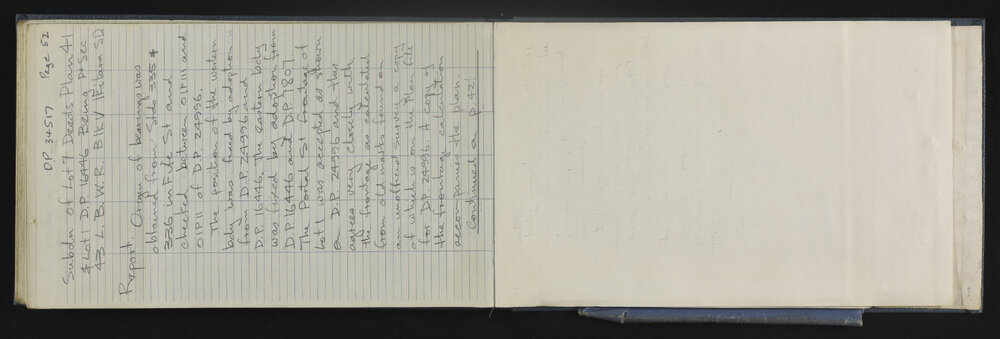 DP. 34517 Page 52
Subdn of Lot 7 Deeds Plan 41
& Lot 1 D.P. 16446 Being Pt Sec
43 L.B.W.R. Blk V Tikitara SD
Report
Origin of bearings was
obtained from Stds 335 &
336 in Fife St and
checked between OIPIII and
OIPII of D.P. 24996.
The position of the western
bdy was fixed by adoption
from D.P. 24996 and
D.P. 16446. The eastern bdy
was fixed by adoption from
D.P. 16446 and D.P. 7807.
The Portal St frontage of
Lot 1 was accepted as shown
on D.P. 24996 and this
agrees very closely with
the frontage as calculated
from old marks found on
an unofficial survey a copy
of which is on the plan file
for D.P. 24996. A copy of
the frontage calculation
accompanies the plan.
Continued on p. 42.